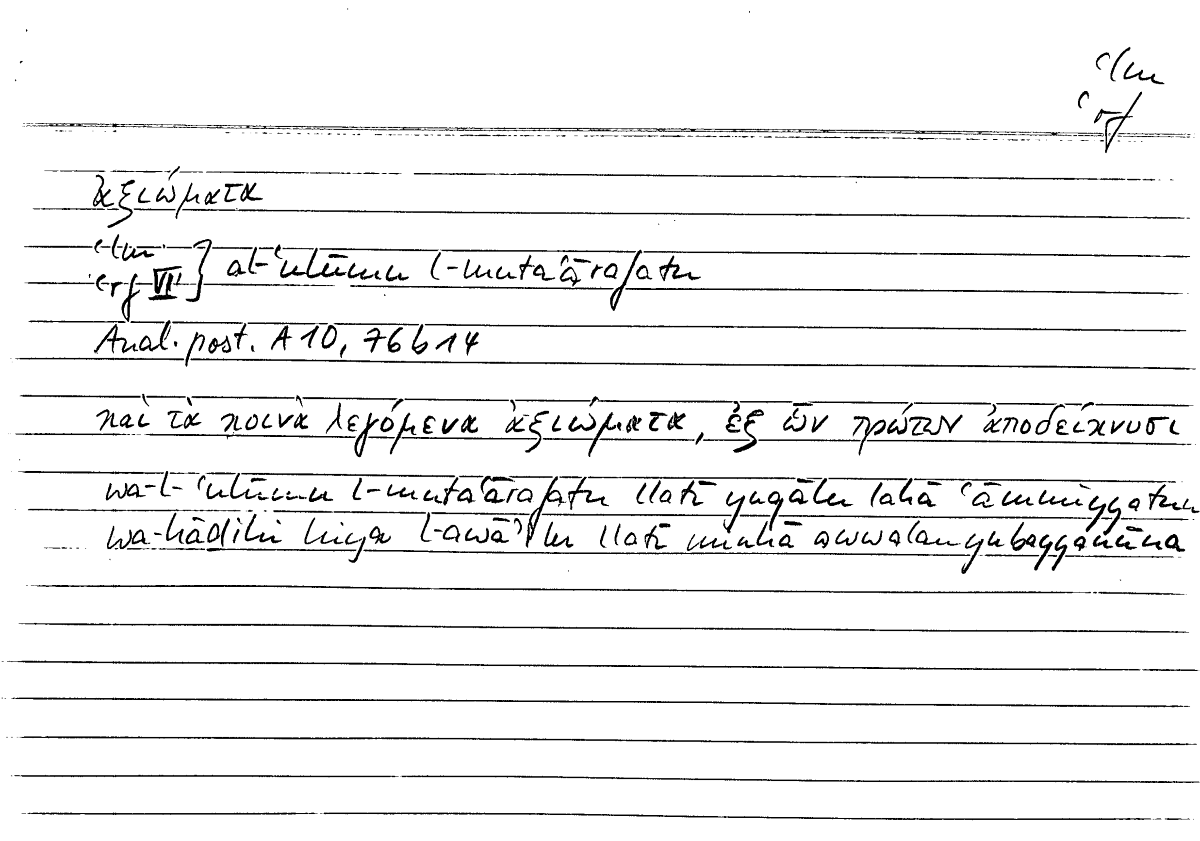 ʿlm
ʿrf
ἀξιώματα
ʿlm
ʿrf VI } al-ʿulūmu l-mutaʿārafatu
Anal. post. A 10, 76 b 14
καὶ τὰ κοινὰ λεγόμενα ἀξιώματα, ἐξ ὧν πρώτων ἀποδείκνυσι
wa-l-ʿulūmu l-mutaʿārafatu llatī yuqālu lahā ʿāmmiyyatun
wa-hāḏihī hiya l-awāʾilu llatī minhā awwalan yubayyinūna